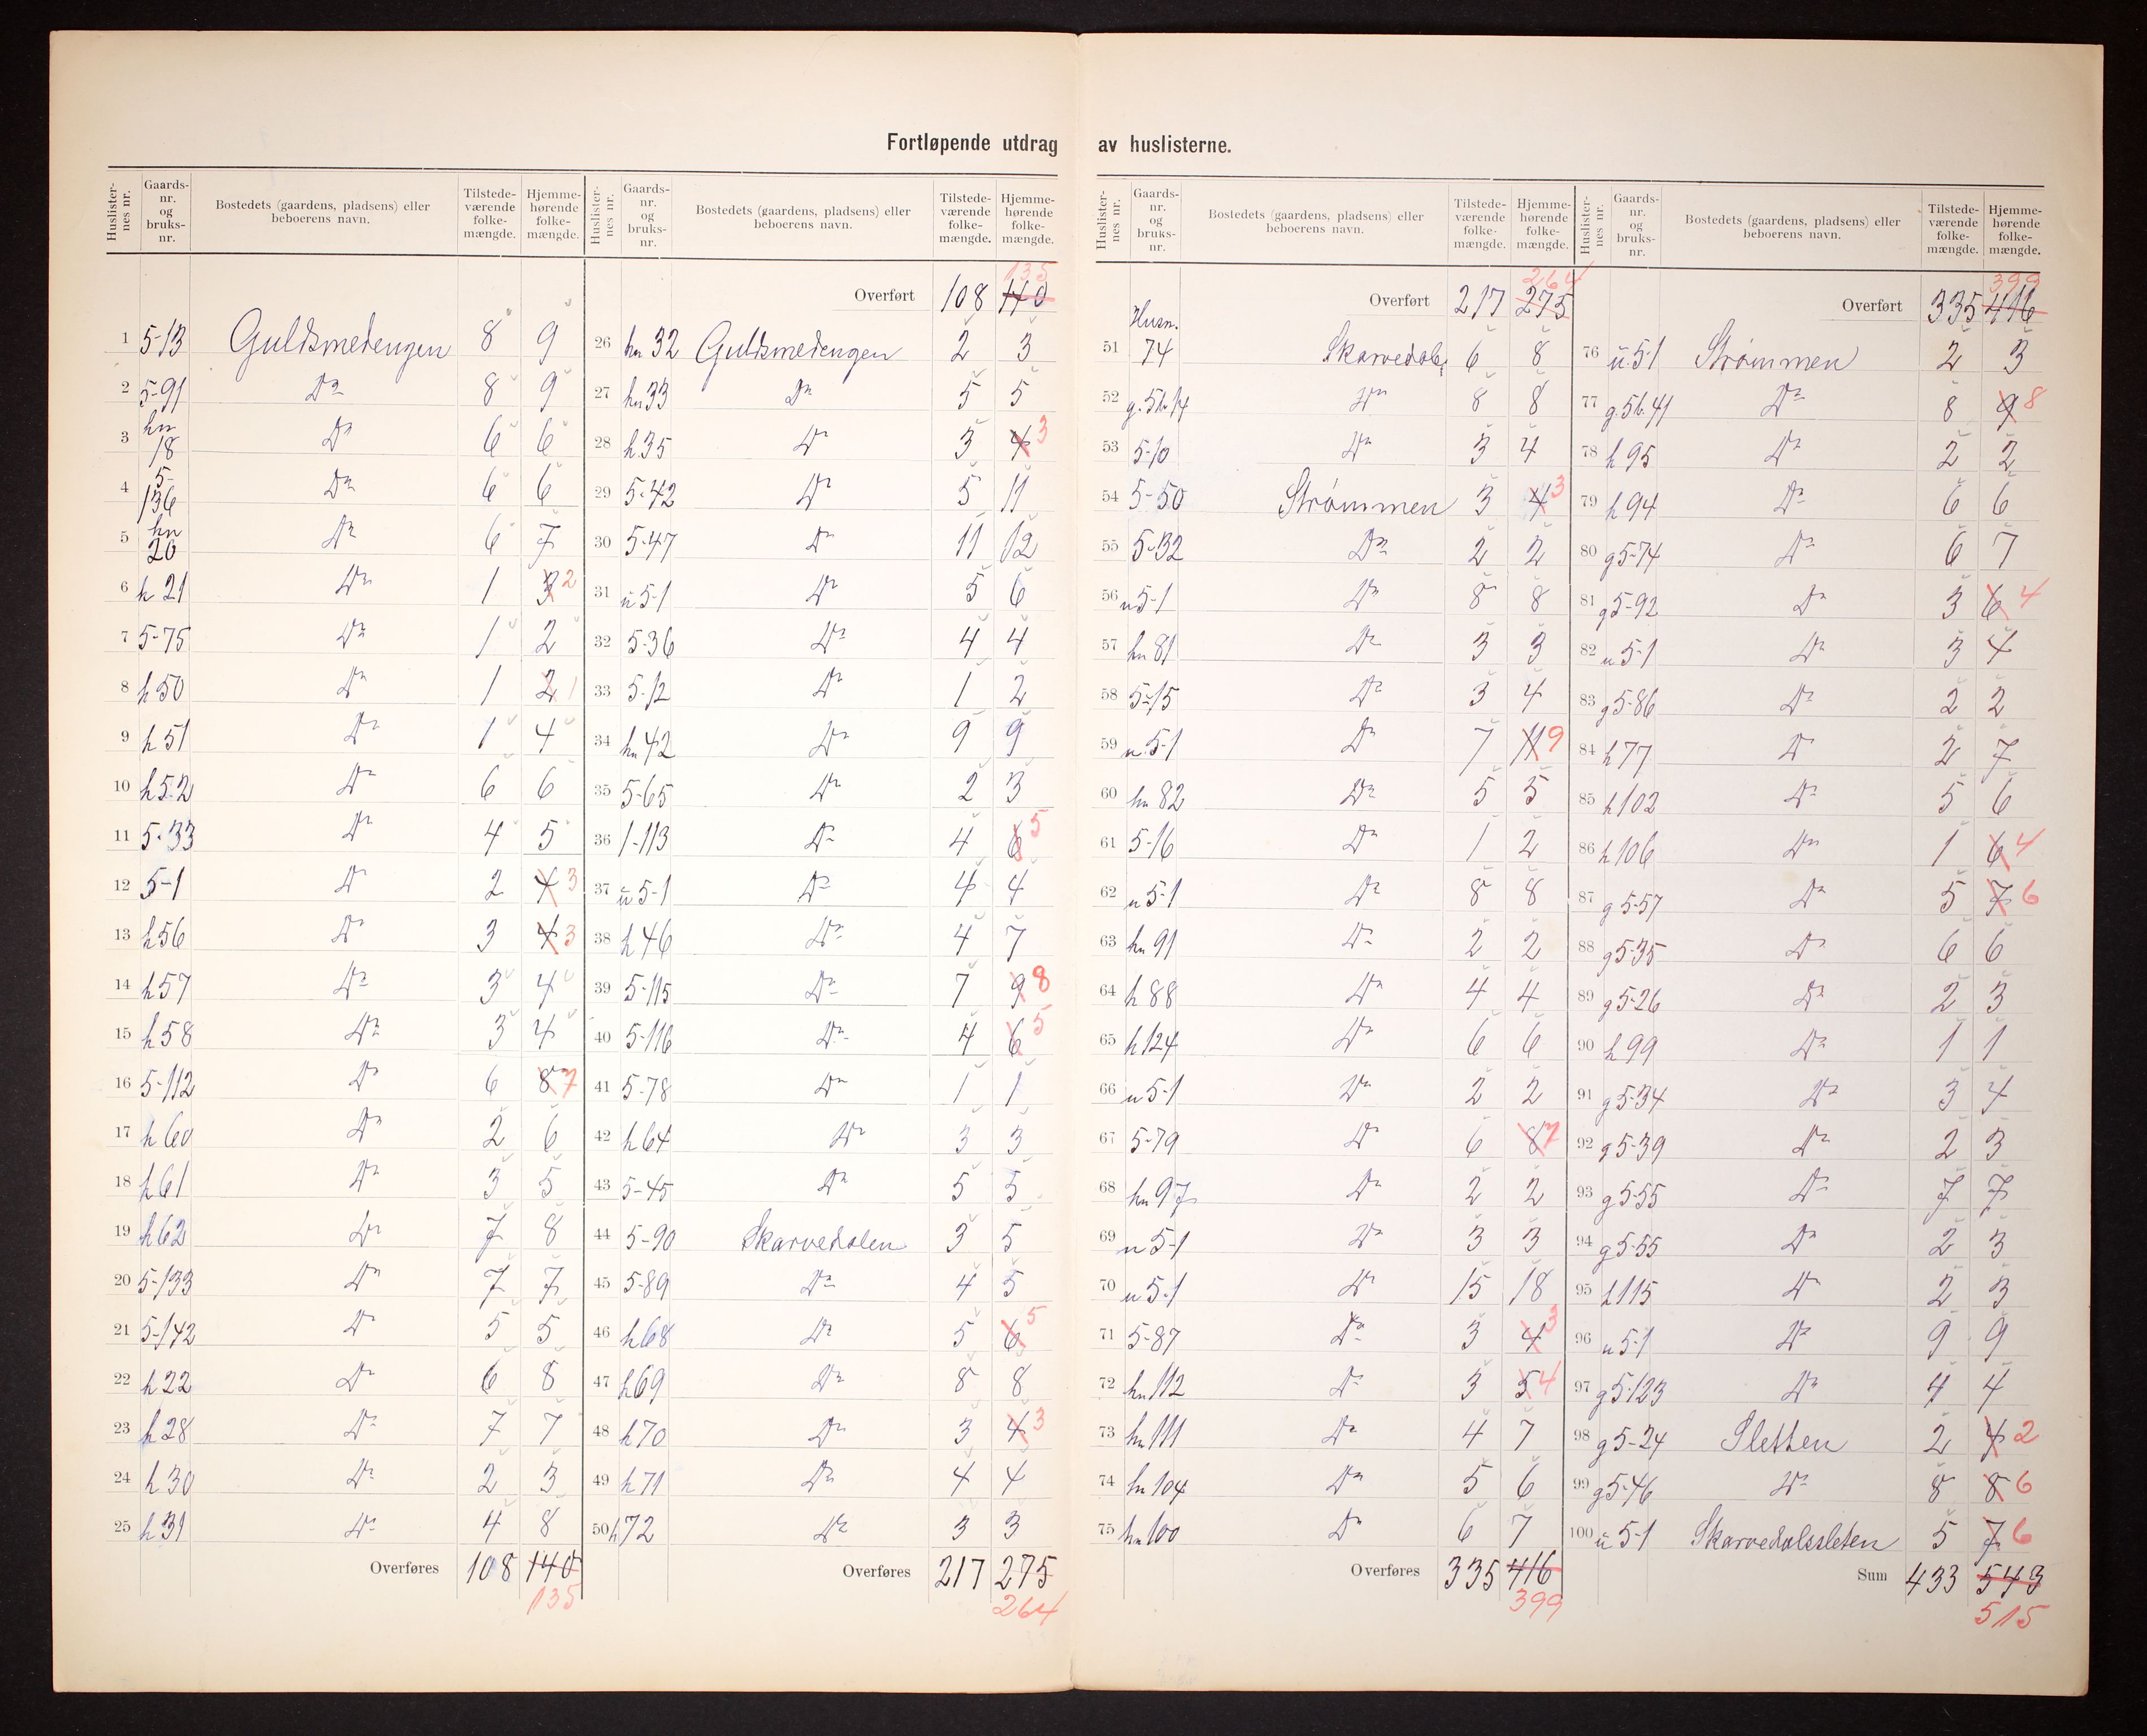 Fortløpende utdrag av huslisterne.
Huslister-nes nr. Gaards-nr. og bruks-nr. Bostedets (gaardens, pladsens) eller beboerens navn. Tilstede-værende folke-mængde. Hjemme-hørende folke-mængde.
1 5-13 Guldsmedengen 8 9
2 5-91 Do 8 9
3 hn 18 Do 6 6
4 5-136 Do 6 6
5 hn 20 Do 6 7
6 h 21 Do 1 3 2
7 5-75 Do 1 2
8 h 50 Do 1 2 1
9 h 51 Do 1 4
10 h 52 Do 6 6
11 5-33 Do 4 5
12 5-1 Do 2 4 3
13 h 56 Do 3 4 3
14 h 57 Do 3 4
15 h 58 Do 3 4
16 5-112 Do 6 8 7
17 h 60 Do 2 6
18 h 61 Do 3 5
19 h 62 Do 7 8
20 5-133 Do 7 7
21 5-142 Do 5 5
22 h 22 Do 6 8
23 h 28 Do 7 7
24 h 30 Do 2 3
25 h 31 Do 4 8
Overføres 108 140
135
Huslister-nes nr. Gaards-nr. og bruks-nr. Bostedets (gaardens, pladsens) eller beboerens navn. Tilstede-værende folke-mængde. Hjemme-hørende folke-mængde.
135
Overført 108 140
26 hn 32 Guldsmedengen 2 3
27 hn 33 Do 5 5
28 h 35 Do 3 4 3
29 5-42 Do 5 11
30 5-47 Do 11 12
31 u 5-1 Do 5 6
32 5-36 Do 4 4
33 5-12 Do 1 2
34 hn 42 Do 9 9
35 5-65 Do 2 3
36 1-113 Do 4 6 5
37 u 5-1 Do 4 4
38 h 46 Do 4 7
39 5-115 Do 7 9 8
40 5-116 Do 4 6 5
41 5-78 Do 1 1
42 h 64 Do 3 3
43 5-45 Do 5 5
44 5-90 Skarvedalen 3 5
45 5-89 Do 4 5
46 h 68 Do 5 6 5
47 h 69 Do 8 8
48 h 70 Do 3 4 3
49 h 71 Do 4 4
50 h 72 Do 3 3
Overføres 217 275
264
Huslister-nes nr. Gaards-nr. og bruks-nr. Bostedets (gaardens, pladsens) eller beboerens navn. Tilstede-værende folke-mængde. Hjemme-hørende folke-mængde.
264
Overført 217 275
51 Husn. 74 Skarvedalen 6 8
52 g. 5 b. 14 Do 8 8
53 5-10 Do 3 4
54 5-50 Strømmen 3 4 3
55 5-32 Do 2 2
56 u 5-1 Do 8 8
57 hn 81 Do 3 3
58 5-15 Do 3 4
59 u 5-1 Do 7 11 9
60 hn 82 Do 5 5
61 5-16 Do 1 2
62 u 5-1 Do 8 8
63 hn 91 Do 2 2
64 h 88 Do 4 4
65 h 124 Do 6 6
66 u 5-1 Do 2 2
67 5-79 Do 6 8 7
68 hn 97 Do 2 2
69 u 5-1 Do 3 3
70 u 5-1 Do 15 18
71 5-87 Do 3 4 3
72 hn 112 Do 3 5 4
73 hn 111 Do 4 7
74 hn 104 Do 5 6
75 hn 100 Do 6 7
Overføres 335 416
399
Huslister-nes nr. Gaards-nr. og bruks-nr. Bostedets (gaardens, pladsens) eller beboerens navn. Tilstede-værende folke-mængde. Hjemme-hørende folke-mængde.
399
Overført 335 416
76 u 5-1 Strømmen 2 3
77 g. 5 b. 41 Do 8 9 8
78 h 95 Do 2 2
79 h 94 Do 6 6
80 g 5-74 Do 6 7
81 g 5-92 Do 3 6 4
82 u 5-1 Do 3 4
83 g 5-86 Do 2 2
84 h 77 Do 2 7
85 h 102 Do 5 6
86 h 106 Do 1 6 4
87 g 5-57 Do 5 7 6
88 g 5-35 Do 6 6
89 g 5-26 Do 2 3
90 h 99 Do 1 1
91 g 5-34 Do 3 4
92 g 5-39 Do 2 3
93 g 5-55 Do 7 7
94 g 5-55 Do 2 3
95 h 115 Do 2 3
96 u 5-1 Do 9 9
97 g 5-123 Do 4 4
98 g 5-24 Sletten 2 4 2
99 g 5-46 Do 8 8 6
100 u 5-1 Skarvedalssleten 5 7 6
Sum 433 543
515